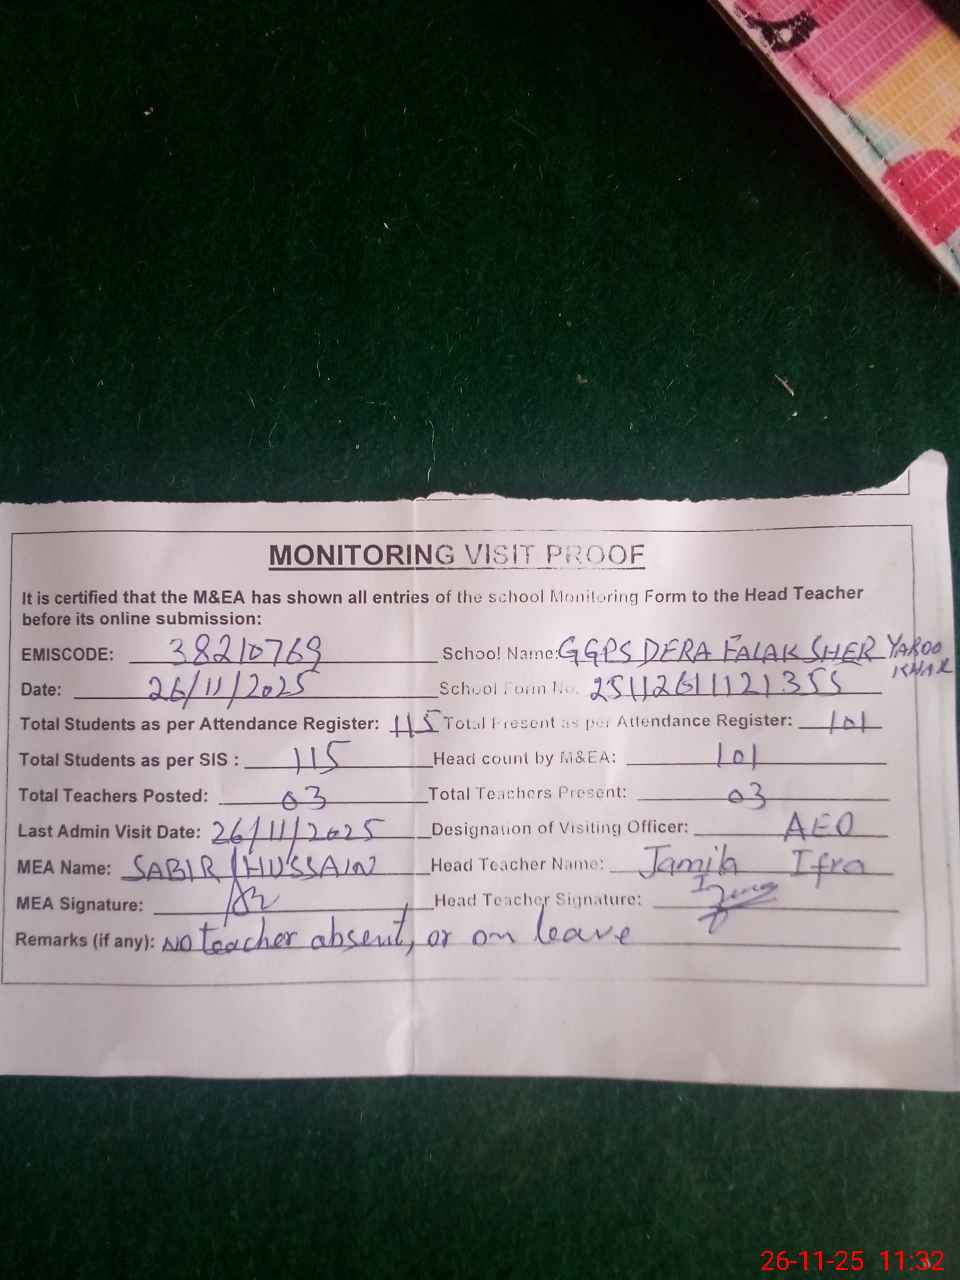 MONITORING VISIT PROOF
It is certified that the M&EA has shown all entries of the school Monitoring Form to the Head Teacher
before its online submission:
EMISCODE: 38210769 School Name: GGPS DERA FALAK SHER YAROO
KHAR
Date: 26/11/2025 School Form No. 2511261121355
Total Students as per Attendance Register: 115 Total Present as per Attendance Register: 101
Total Students as per SIS : 115 Head count by M&EA: 101
Total Teachers Posted: 03 Total Teachers Present: 03
Last Admin Visit Date: 26/11/2025 Designation of Visiting Officer: AEO
MEA Name: SABIR HUSSAIN Head Teacher Name: Ifra
MEA Signature: Head Teacher Signature:
Remarks (if any): NO teacher absent, or on leave
26-11-25 11:32